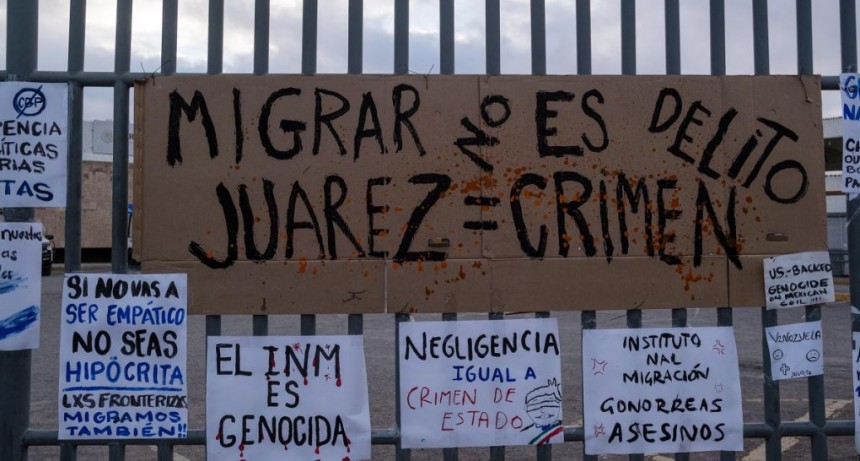 MIGRAR NO ES DELITO
JUAREZ = CRIMEN
CBP
PENCIA
ÍTICAS
RIAS
TAS
SI NO VAS A
SER EMPÁTICO
NO SEAS
HIPÓCRITA
LXS FRONTERIZXS
MIGRAMOS
TAMBIÉN!!
EL INM
ES
GENOCIDA
NEGLIGENCIA
IGUAL A
CRIMEN DE
ESTADO
INSTITUTO
NAL
MIGRACIÓN
GONORREAS
ASESINOS
US-BACKED
GENOCIDE
ON MEXICAN
VENEZUELA